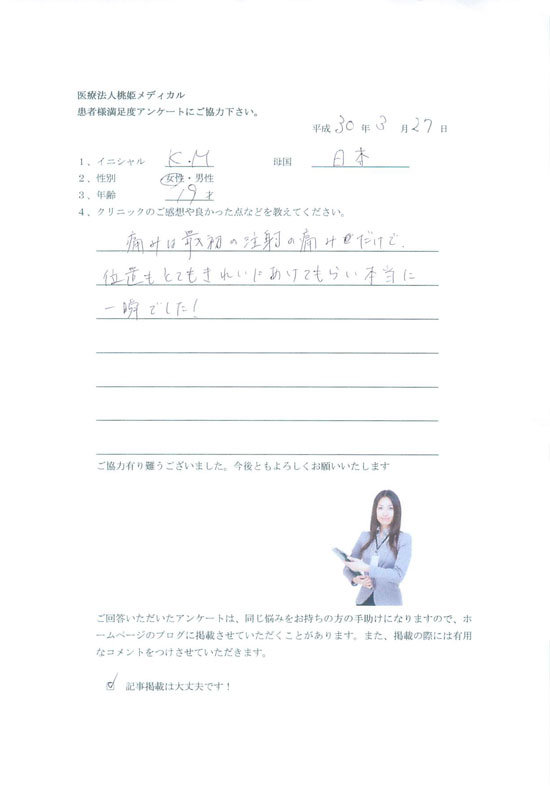 医療法人桃姫メディカル
患者様満足度アンケートにご協力下さい。
平成 30 年 3 月 27 日
1、イニシャル K.M 母国 日本
2、性別 女性・男性
3、年齢 19才
4、クリニックのご感想や良かった点などを教えてください。
痛みは最初の注射の痛みだけで、
位置もとてもきれいにあけてもらい本当に
一瞬でした!
ご協力有り難うございました。今後ともよろしくお願いいたします
ご回答いただいたアンケートは、同じ悩みをお持ちの方の手助けになりますので、ホ
ームページのブログに掲載させていただくことがあります。また、掲載の際には有用
なコメントをつけさせていただきます。
☑ 記事掲載は大丈夫です!